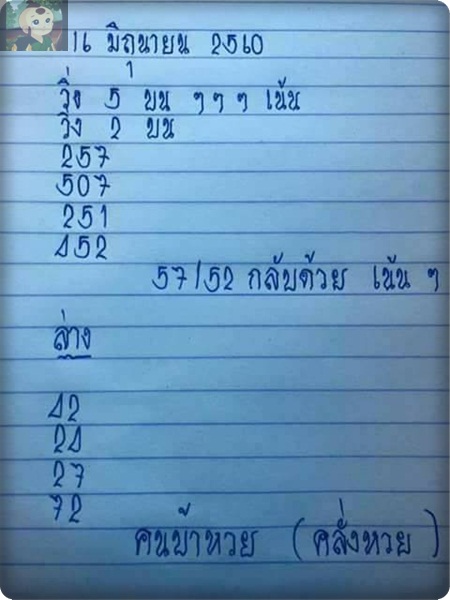 16 มิถุนายน 2560
วิ่ง 5 บน ๆ ๆ ๆ เน้น
วิ่ง 2 บน
257
507
251
452
57/52 กลับด้วย เน้น ๆ
ล่าง
42
24
27
72
คนบ้าหวย (คลั่งหวย)